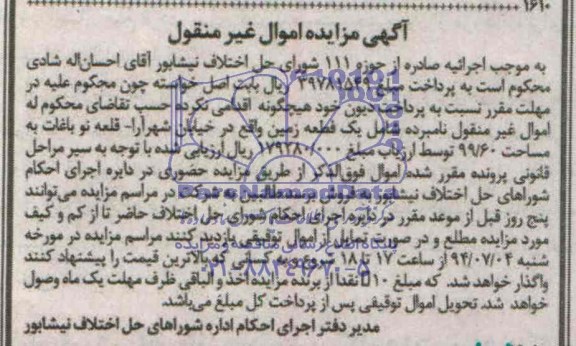 ۱۶۱۰
آگهی مزایده اموال غیر منقول
به موجب اجرائیه صادره از حوزه ۱۱۱ شورای حل اختلاف نیشابور آقای احسان‌اله شادی
محکوم است به پرداخت مبلغ ریال بابت اصل خواسته چون محکوم علیه در
مهلت مقرر نسبت به پرداخت دیون خود هیچگونه اقدامی نکرده حسب تقاضای محکوم له
اموال غیر منقول نامبرده شامل یک قطعه زمین واقع در خیابان شهرآرا- قلعه نو باغات به
مساحت ۹۹/۶۰ توسط ارزیاب مبلغ ۱۷۹۲۸۰۰۰۰ ریال ارزیابی شده با توجه به سیر مراحل
قانونی پرونده مقرر شده اموال فوق‌الذکر از طریق مزایده حضوری در دایره اجرای احکام
شوراهای حل اختلاف نیشابور به فروش برسد طالبین به شرکت در مراسم مزایده می‌توانند
پنج روز قبل از موعد مقرر در دایره اجرای احکام شورای حل اختلاف حاضر تا از کم و کیف
مورد مزایده مطلع و در صورت تمایل از اموال توقیفی بازدید کنند مراسم مزایده در مورخه
شنبه ۹۴/۰۷/۰۴ از ساعت ۱۷ تا ۱۸ شروع و به کسانی که بالاترین قیمت را پیشنهاد کنند
واگذار خواهد شد. که مبلغ ۱۰٪ نقدا از برنده مزایده اخذ و الباقی ظرف مهلت یک ماه وصول
خواهد شد. تحویل اموال توقیفی پس از پرداخت کل مبلغ می‌باشد.
مدیر دفتر اجرای احکام اداره شوراهای حل اختلاف نیشابور